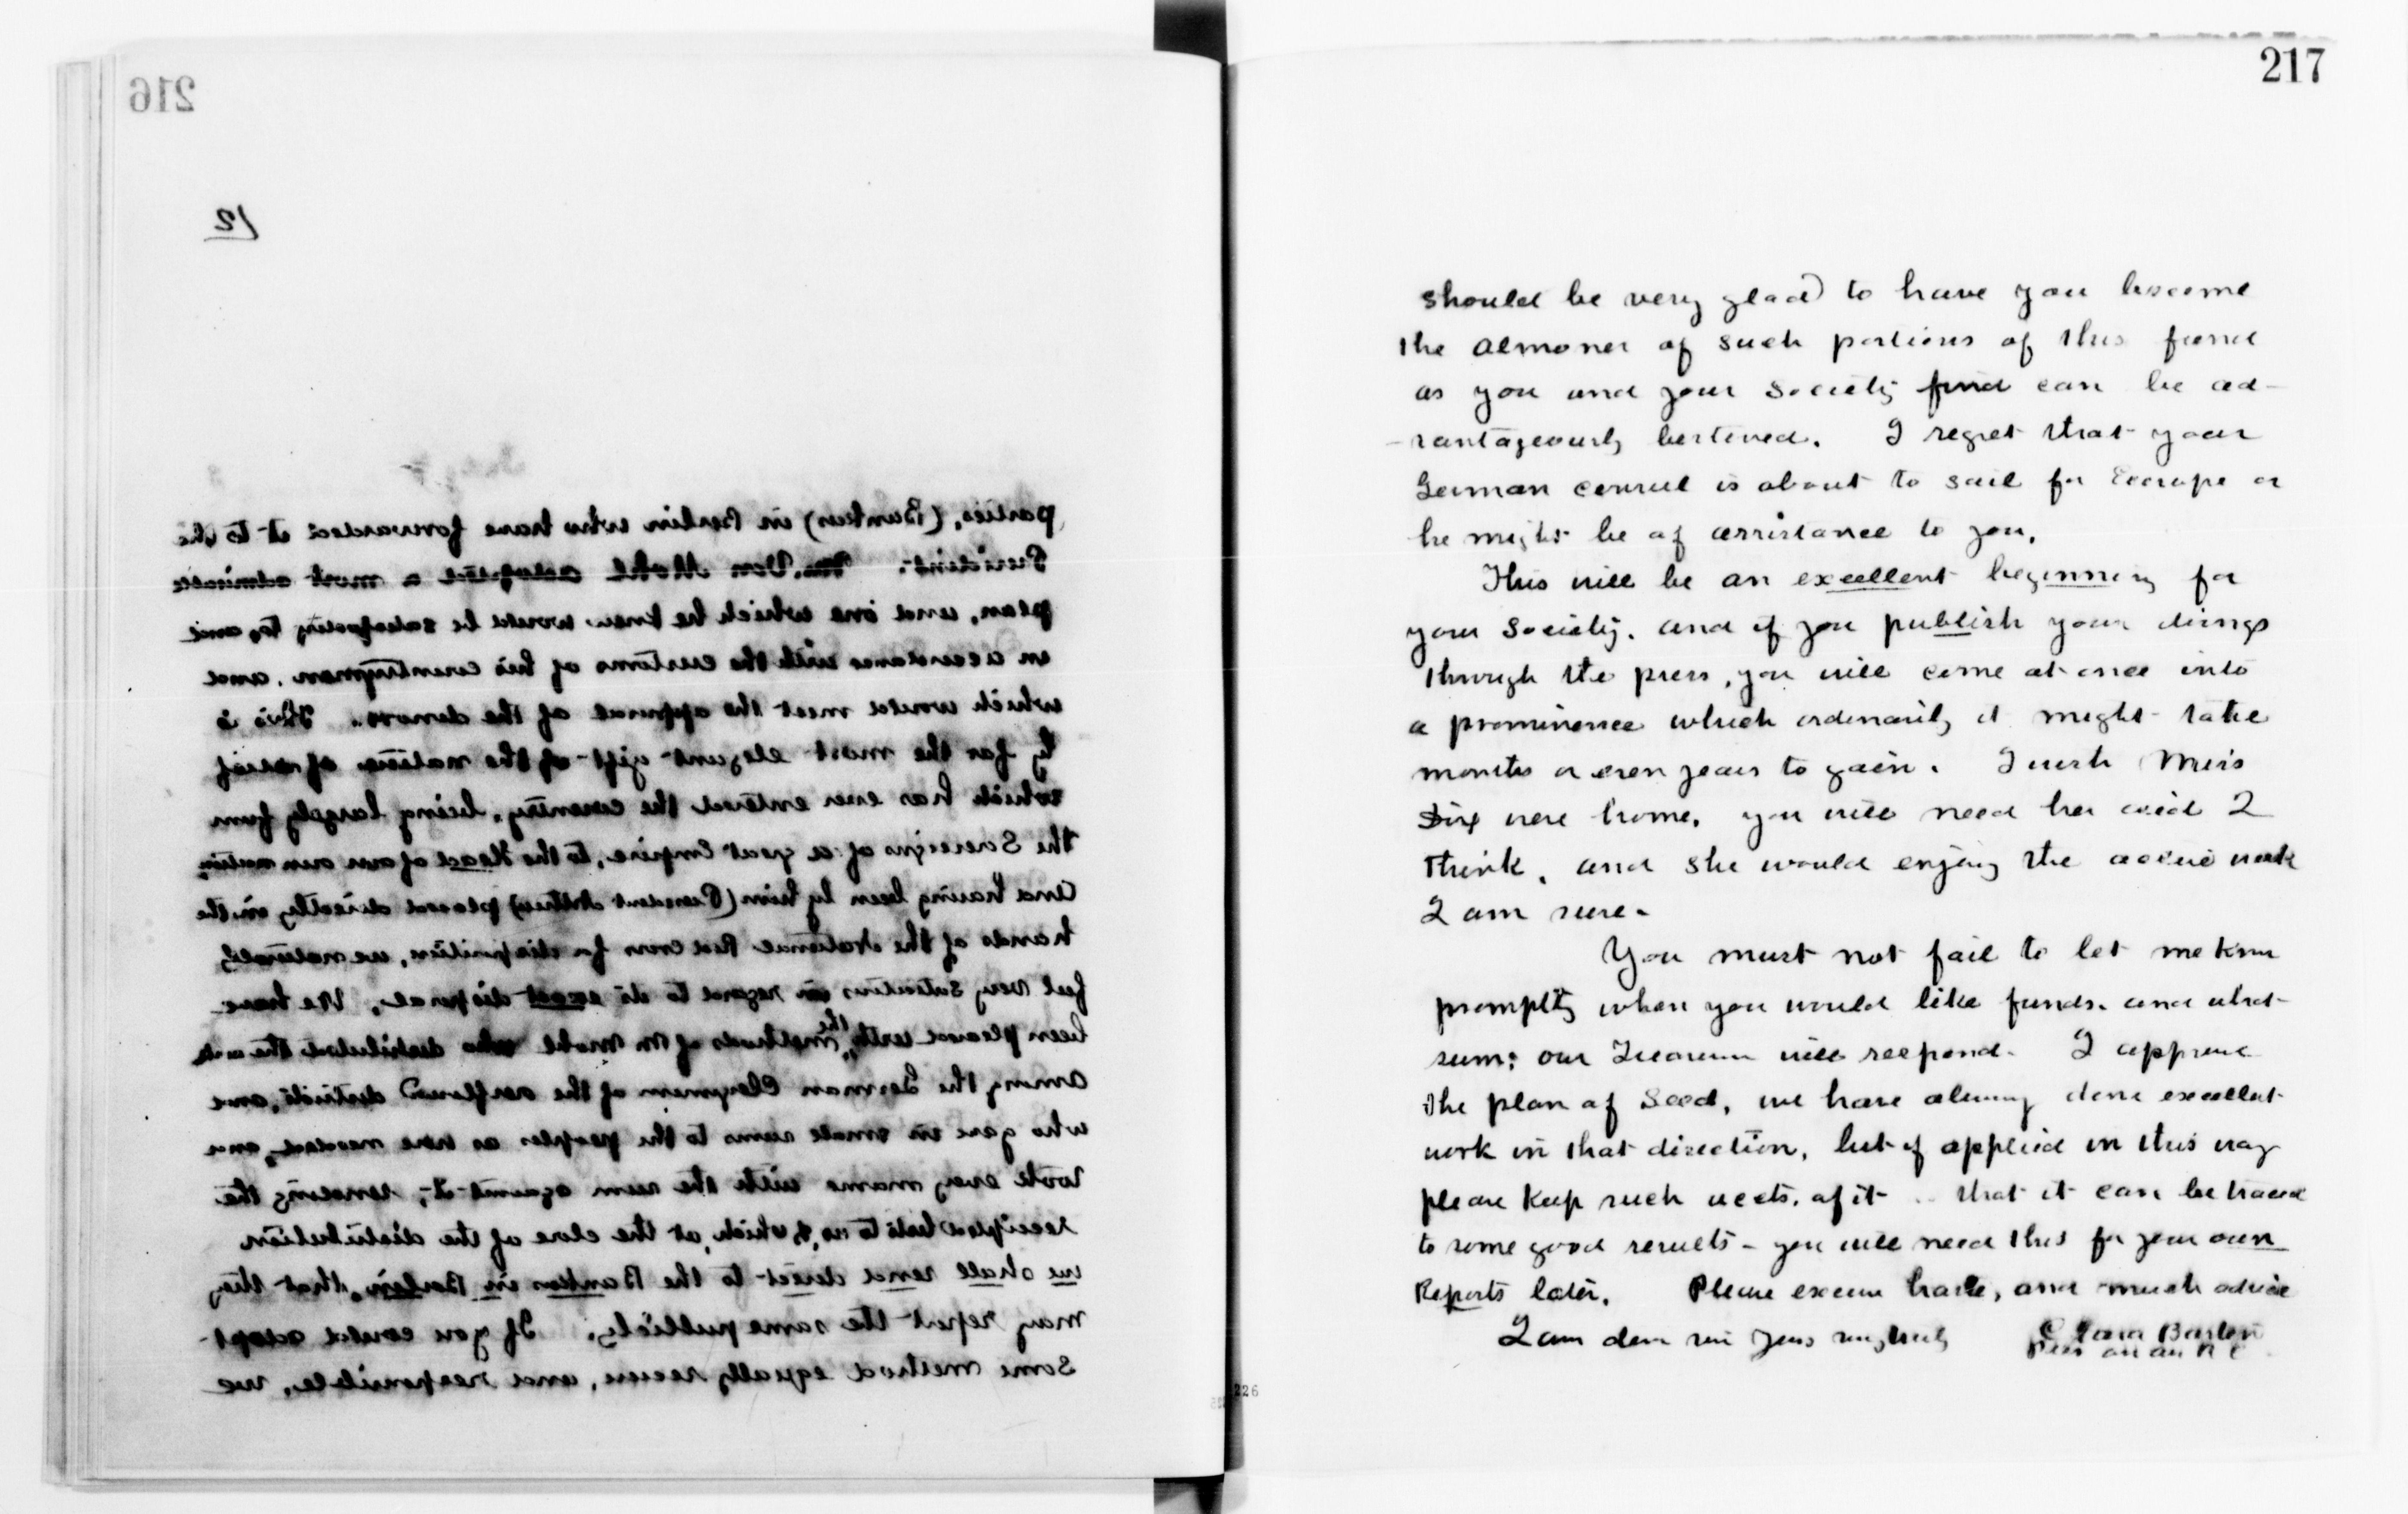 216
12
parties, (Bankers) in Berlin who have forwarded it to the
President. Mr. Von Mohl adopted a most admirable
plan, and one which he knew would be satisfactory to, and
in accordance with the customs of his countrymen, and
which would meet the approval of the donors. This is
by far the most elegant gift of the nature of relief
which has ever entered the country, being largely from
the Sovereign of a great Empire, to the Head of our own nation,
and having been by him (President Arthur) placed directly in the
hands of the National Red Cross for disposition, we naturally
feel very solicitous in regard to its exact disposal. We have
been pleased with the methods of Mr Mohl who distributed
among the German Clergymen of the overflowed districts, one
who gave in small sums to the people as were needed, and
took every name with the sum against it, rendering the
receipted lists to us, & which, at the close of the distribution
we shall send direct to the Bankers in Berlin, that they
may report the same publicly. If you could adopt
some method equally secure, and responsible, we
217
should be very glad to have you become
the almoner of such portions of this fund
as you and your Society find can be ad-
-vantageously bestowed. I regret that your
German consul is about to sail for Europe or
he might be of assistance to you.
This will be an excellent beginning for
your Society. and if you publish your doings
through the press, you will come at once into
a prominence which ordinarily it might take
months or even years to gain. I wish Miss
Dix were home, you will need her aid I
think, and she would enjoy the active work
I am sure.
You must not fail to let me know
promptly when you would like funds. and what
sum: our Treasurer will respond. I approve
the plan of Seed, we have always done excellent
work in that direction, but if applied in this way
please keep such accts. of it that it can be traced
to some good results - you will need this for your own
Reports later. Please excuse haste, and much advice
I am dear sir yours very truly Clara Barton
Pres am an R C
226